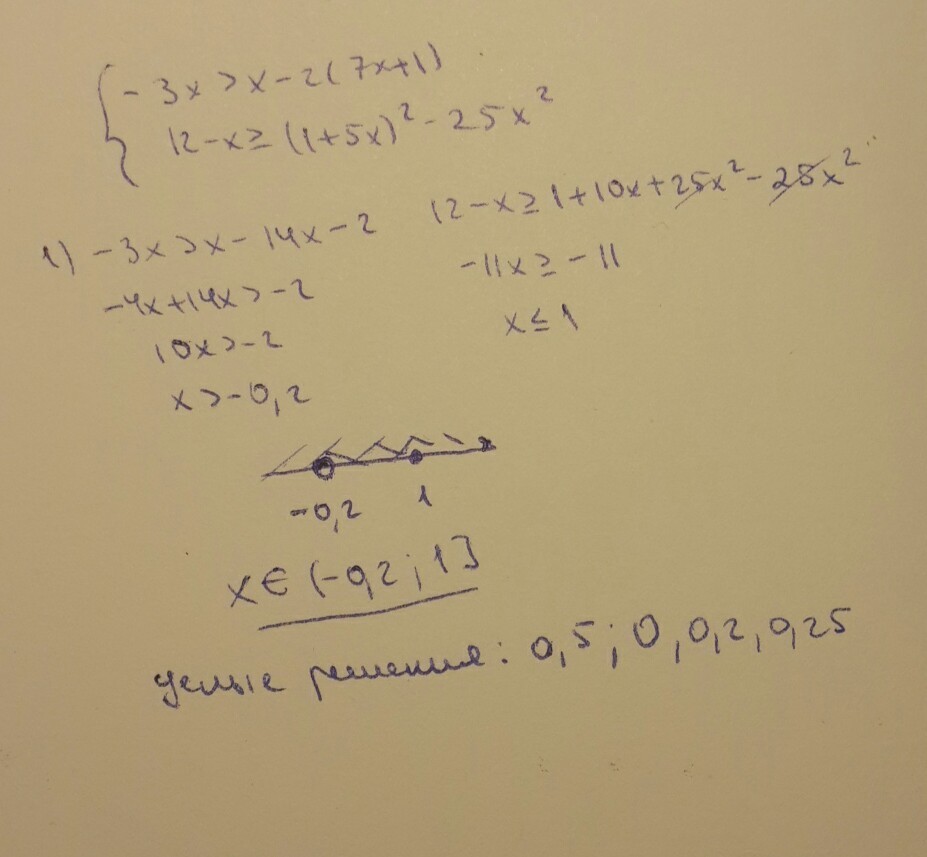 { -3x > x - 2(7x+1)
12 - x ≥ (1+5x)² - 25x²
1) -3x > x - 14x - 2
-4x + 14x > -2
10x > -2
x > -0,2
12 - x ≥ 1 + 10x + 25x² - 25x²
-11x ≥ -11
x ≤ 1
-0,2 1
x ∈ (-0,2 ; 1]
целые решения: 0,5 ; 0 , 0,2 , 0,25